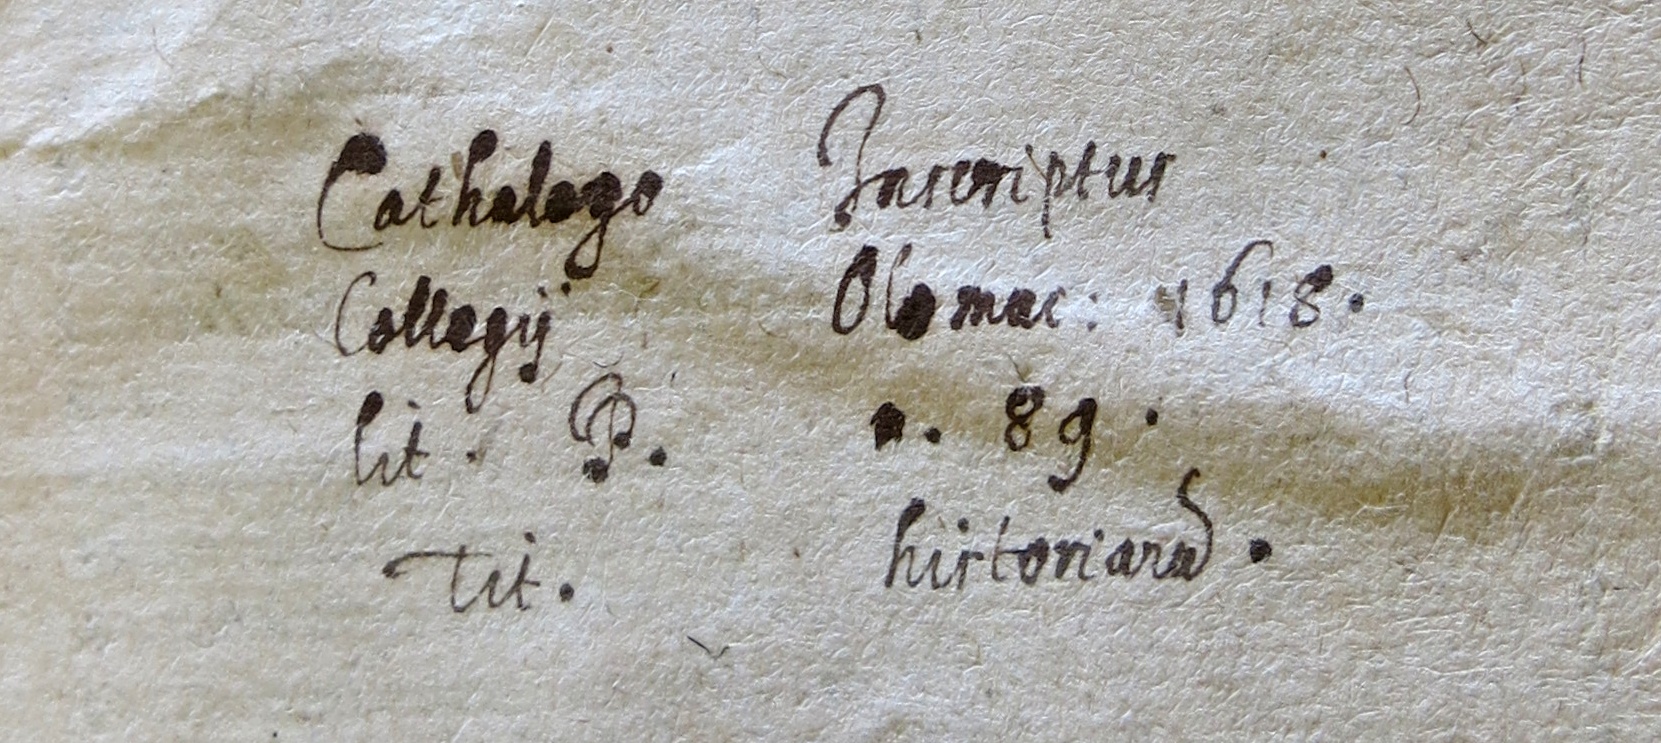 Cathalogo Inscriptus
Collegij Olomuc: 1618.
lit. P. n. 89.
Tit. historiarũ.